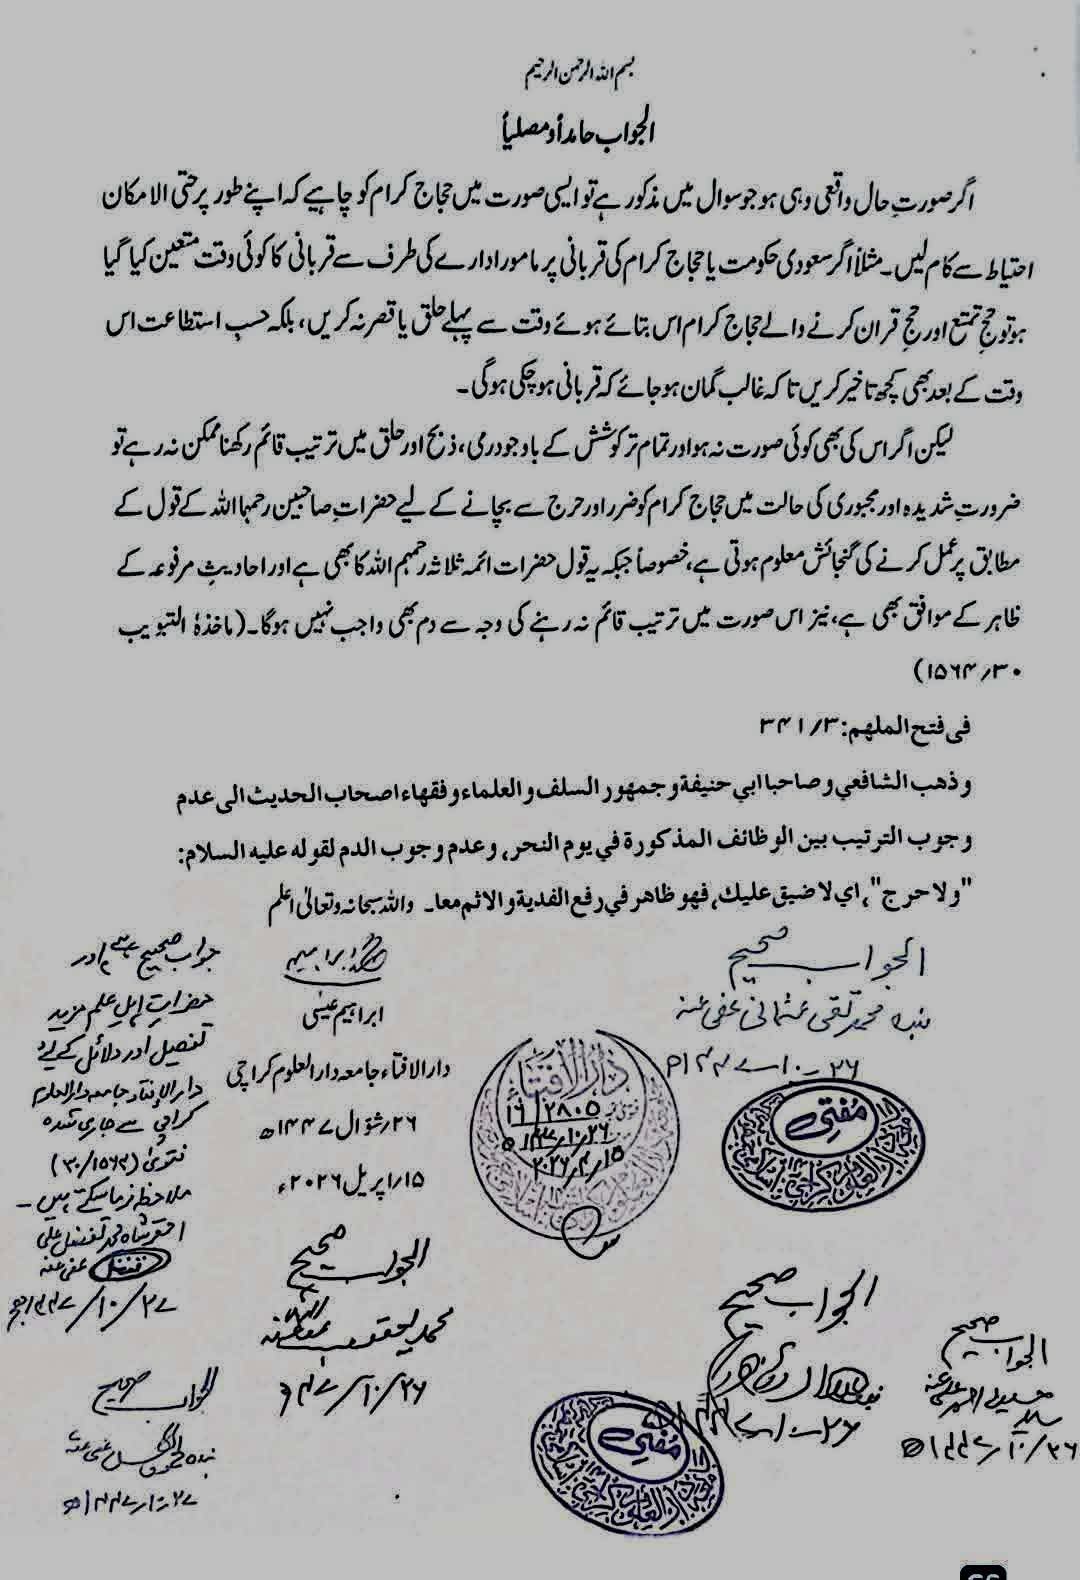 بسم اللہ الرحمن الرحیم
الجواب حامداً ومصلیاً
اگر صورتِ حال واقعی وہی ہو جو سوال میں مذکور ہے تو ایسی صورت میں حجاج کرام کو چاہیے کہ اپنے طور پر حتی الامکان
احتیاط سے کام لیں۔ مثلاً اگر سعودی حکومت یا حجاج کرام کی قربانی پر مامور ادارے کی طرف سے قربانی کا کوئی وقت متعین کیا گیا
ہو تو حجِ تمتع اور حجِ قران کرنے والے حجاج کرام اس بتائے ہوئے وقت سے پہلے حلق یا قصر نہ کریں، بلکہ حسبِ استطاعت اس
وقت کے بعد بھی کچھ تاخیر کریں تاکہ غالب گمان ہو جائے کہ قربانی ہو چکی ہوگی۔
لیکن اگر اس کی بھی کوئی صورت نہ ہو اور تمام تر کوشش کے باوجود رمی، ذبح اور حلق میں ترتیب قائم رکھنا ممکن نہ رہے تو
ضرورتِ شدیدہ اور مجبوری کی حالت میں حجاج کرام کو ضرر اور حرج سے بچانے کے لیے حضراتِ صاحبین رحمہما اللہ کے قول کے
مطابق پر عمل کرنے کی گنجائش معلوم ہوتی ہے، خصوصاً جبکہ یہ قول حضرات ائمہ ثلاثہ رحمہم اللہ کا بھی ہے اور احادیثِ مرفوعہ کے
ظاہر کے موافق بھی ہے، نیز اس صورت میں ترتیب قائم نہ رہنے کی وجہ سے دم بھی واجب نہیں ہوگا۔ (ماخذہٗ التبویب
۱۵۶۴/۳۰)
فی فتح الملہم: ۳/۳۴۱
وذهب الشافعي وصاحبا ابي حنيفة وجمهور السلف والعلماء وفقهاء اصحاب الحديث الى عدم
وجوب الترتيب بين الوظائف المذكورة في يوم النحر، وعدم وجوب الدم لقوله عليه السلام:
"ولا حرج"، اي لا ضيق عليك، فهو ظاهر في رفع الفدية والاثم معا۔ واللہ سبحانہ وتعالیٰ اعلم
الجواب صحیح
بندہ محمد تقی عثمانی عفی عنہ
۲۶-۱۰-۱۴۴۷ھ
مفتی
ابراہیم عیسیٰ
دار الافتاء جامعہ دار العلوم کراچی
۲۶/شوال ۱۴۴۷ھ
۱۵/اپریل ۲۰۲۶ء
دار الافتاء
۲۸۰۵/۱۶
۲۶/۱۰/۱۴۴۷ھ
۱۵/۴/۲۰۲۶
جواب صحیح ہے اور
حضراتِ اہلِ علم مزید
تفصیل اور دلائل کے لیے
دار الافتاء جامعہ دار العلوم
کراچی سے جاری شدہ
فتویٰ (۳۰/۱۵۶۴)
ملاحظہ فرما سکتے ہیں۔
احقر شاہ محمد تفضل علی
عفی عنہ
۲۷/۱۰/۱۴۴۷ھ
الجواب صحیح
محمد یعقوب عفا اللہ عنہ
۲۶/۱۰/۱۴۴۷ھ
الجواب صحیح
۲۶-۱۰-۱۴۴۷ھ
مفتی
الجواب صحیح
سید حسین احمد عفی عنہ
۲۶/۱۰/۱۴۴۷ھ
الجواب صحیح
۲۷-۱۰-۱۴۴۷ھ